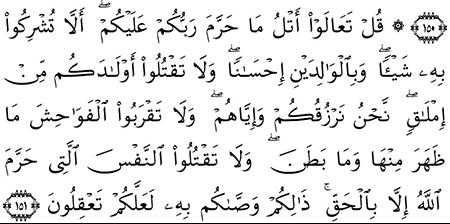 ﴿١٥٠﴾ ۞ قُلْ تَعَالَوْا۟ أَتْلُ مَا حَرَّمَ رَبُّكُمْ عَلَيْكُمْ ۖ أَلَّا تُشْرِكُوا۟
بِهِۦ شَيْـًٔا ۖ وَبِٱلْوَٰلِدَيْنِ إِحْسَـٰنًا ۖ وَلَا تَقْتُلُوٓا۟ أَوْلَـٰدَكُم مِّنْ
إِمْلَـٰقٍ ۖ نَّحْنُ نَرْزُقُكُمْ وَإِيَّاهُمْ ۖ وَلَا تَقْرَبُوا۟ ٱلْفَوَٰحِشَ مَا
ظَهَرَ مِنْهَا وَمَا بَطَنَ ۖ وَلَا تَقْتُلُوا۟ ٱلنَّفْسَ ٱلَّتِى حَرَّمَ
ٱللَّهُ إِلَّا بِٱلْحَقِّ ۚ ذَٰلِكُمْ وَصَّىٰكُم بِهِۦ لَعَلَّكُمْ تَعْقِلُونَ ﴿١٥١﴾